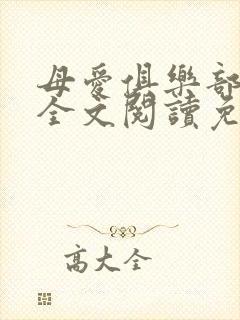 母愛俱樂部
全文閱讀免
高大全